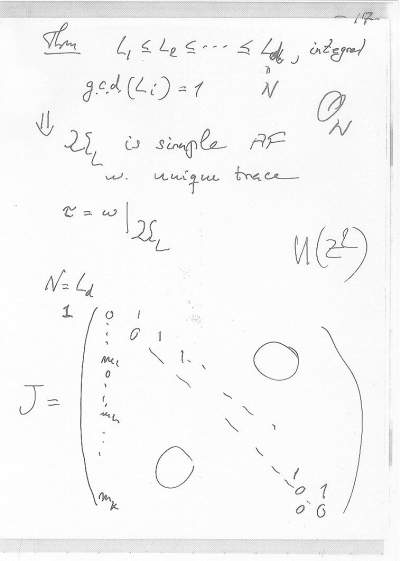 - 17 -
Thm L₁ ≤ L₂ ≤ ⋯ ≤ L_d, integral
g.c.d (Lᵢ) = 1 N
O_N
⇓ 𝔄_L is simple AF
w. unique trace
τ = ω |_𝔄_L
U(Z^L)
N = L_d
1 0 1
⋮ 0 1
m₁ 1
0
⋮
⋮
J =
⋮ 1
0 1
m_k 0 0